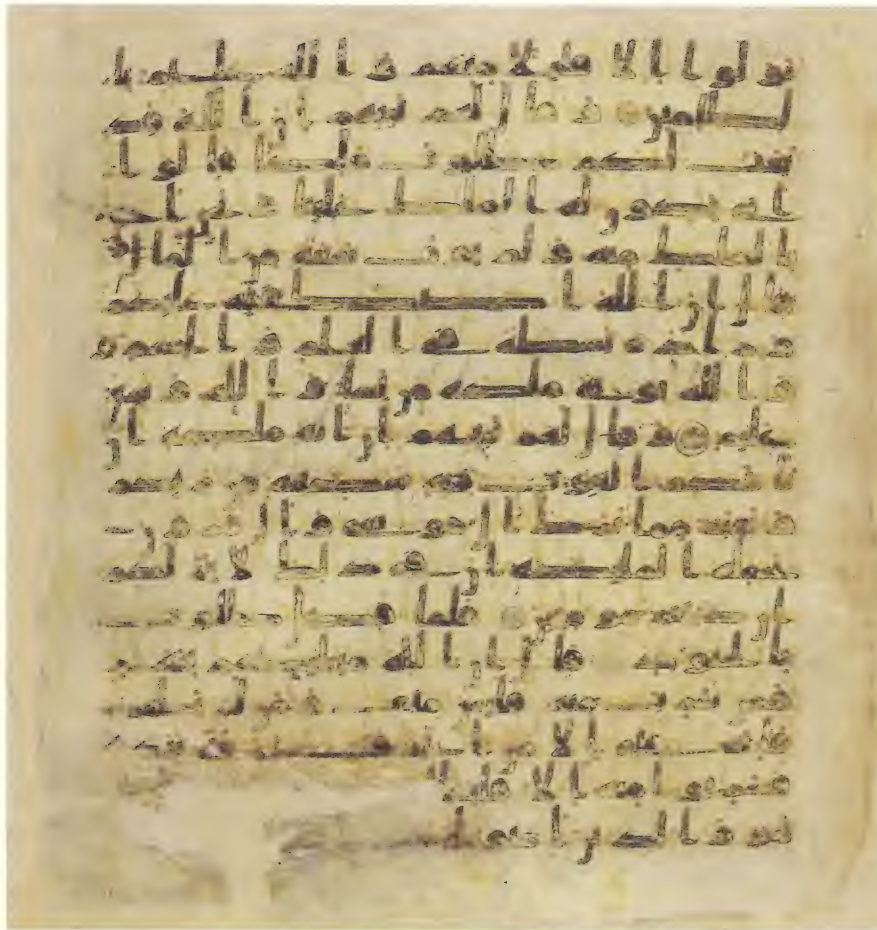 تولوا الا قليلا منهم و الله عليم با
لظلمين و قال لهم نبيهم ان الله قد
بعث لكم طالوت ملكا قالوا ا
نى يكون له الملك علينا و نحن احق
بالملك منه و لم يوت سعة من المال
قال ان الله اصطفيه عليكم
و زاده بسطة في العلم و الجسم
و الله يوتي ملكه من يشا و الله وسع
عليم و قال لهم نبيهم ان اية ملكه ان
ياتيكم التابوت فيه سكينة من ربكم
و بقية مما ترك ال موسى و ال هرون
تحمله الملئكة ان في ذلك لاية لكم
ان كنتم مومنين فلما فصل طالوت
بالجنود قال ان الله مبتليكم بنهر
فمن شرب منه فليس مني و من لم يطعمه
فانه مني الا من اغترف غرفة بيده
فشربوا منه الا قليلا
هو و الذين امنوا